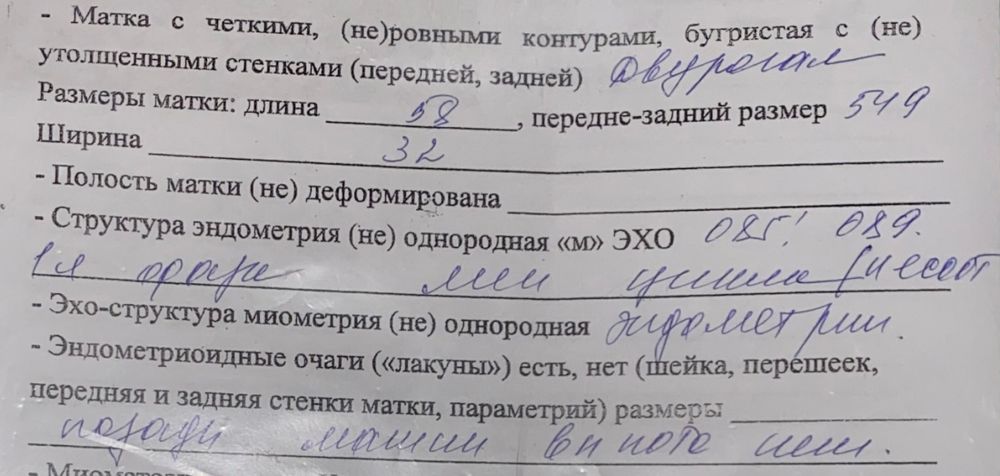 - Матка с четкими, (не)ровными контурами, бугристая с (не)
утолщенными стенками (передней, задней) Двурогая
Размеры матки: длина 58, передне-задний размер 549
Ширина 32
- Полость матки (не) деформирована
- Структура эндометрия (не) однородная «м» ЭХО 085! 089.
1я фаза мен цикла (несоот
- Эхо-структура миометрия (не) однородная эндометрии.
- Эндометриоидные очаги («лакуны») есть, нет (шейка, перешеек,
передняя и задняя стенки матки, параметрий) размеры
позади матки выпота нет.